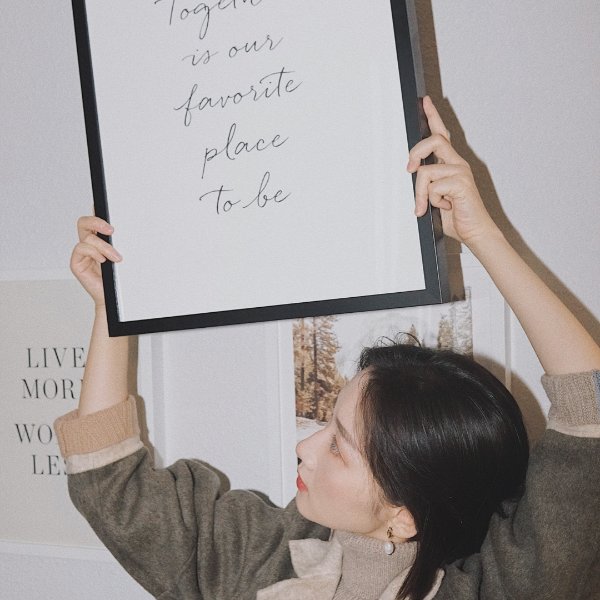 Together
is our
favorite
place
to be
LIVE
MOR
WO
LES